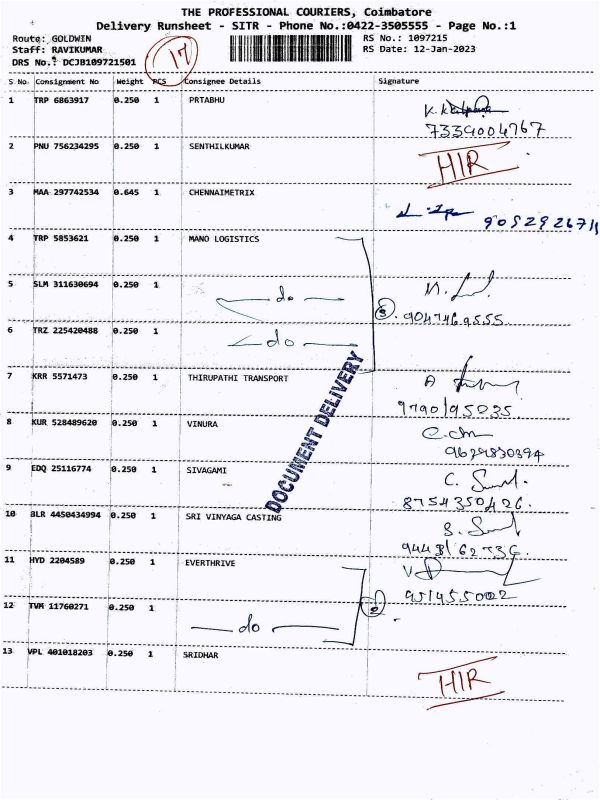 THE PROFESSIONAL COURIERS, Coimbatore
Delivery Runsheet - SITR - Phone No.:0422-3505555 - Page No.:1
Route: GOLDWIN
RS No.: 1097215
Staff: RAVIKUMAR
RS Date: 12-Jan-2023
DRS No.: DCJB109721501
17
S No Consignment No Weight PCS Consignee Details Signature
1 TRP 6863917 0.250 1 PRTABHU
7339004767
2 PNU 756234295 0.250 1 SENTHILKUMAR HIR
3 MAA 297742534 0.645 1 CHENNAIMETRIX
4 TRP 5853621 0.250 1 MANO LOGISTICS
5 SLM 311630694 0.250 1 do
3 9047469555
6 TRZ 225420488 0.250 1 do
7 KRR 5571473 0.250 1 THIRUPATHI TRANSPORT
DOCUMENT DELIVERY
8 KUR 528489620 0.250 1 VINURA
9629830394
9 EDQ 25116774 0.250 1 SIVAGAMI
8754350426
10 BLR 4450434994 0.250 1 SRI VINYAGA CASTING
11 HYD 2204589 0.250 1 EVERTHRIVE
2
12 TVM 11760271 0.250 1 do
13 VPL 401018203 0.250 1 SRIDHAR
HIR